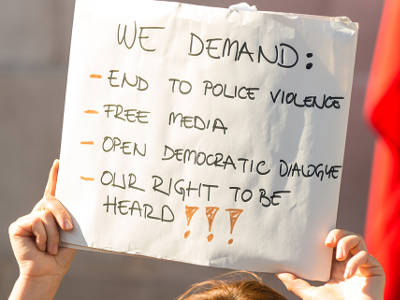 WE DEMAND:
- END TO POLICE VIOLENCE
- FREE MEDIA
- OPEN DEMOCRATIC DIALOGUE
- OUR RIGHT TO BE
HEARD !!!